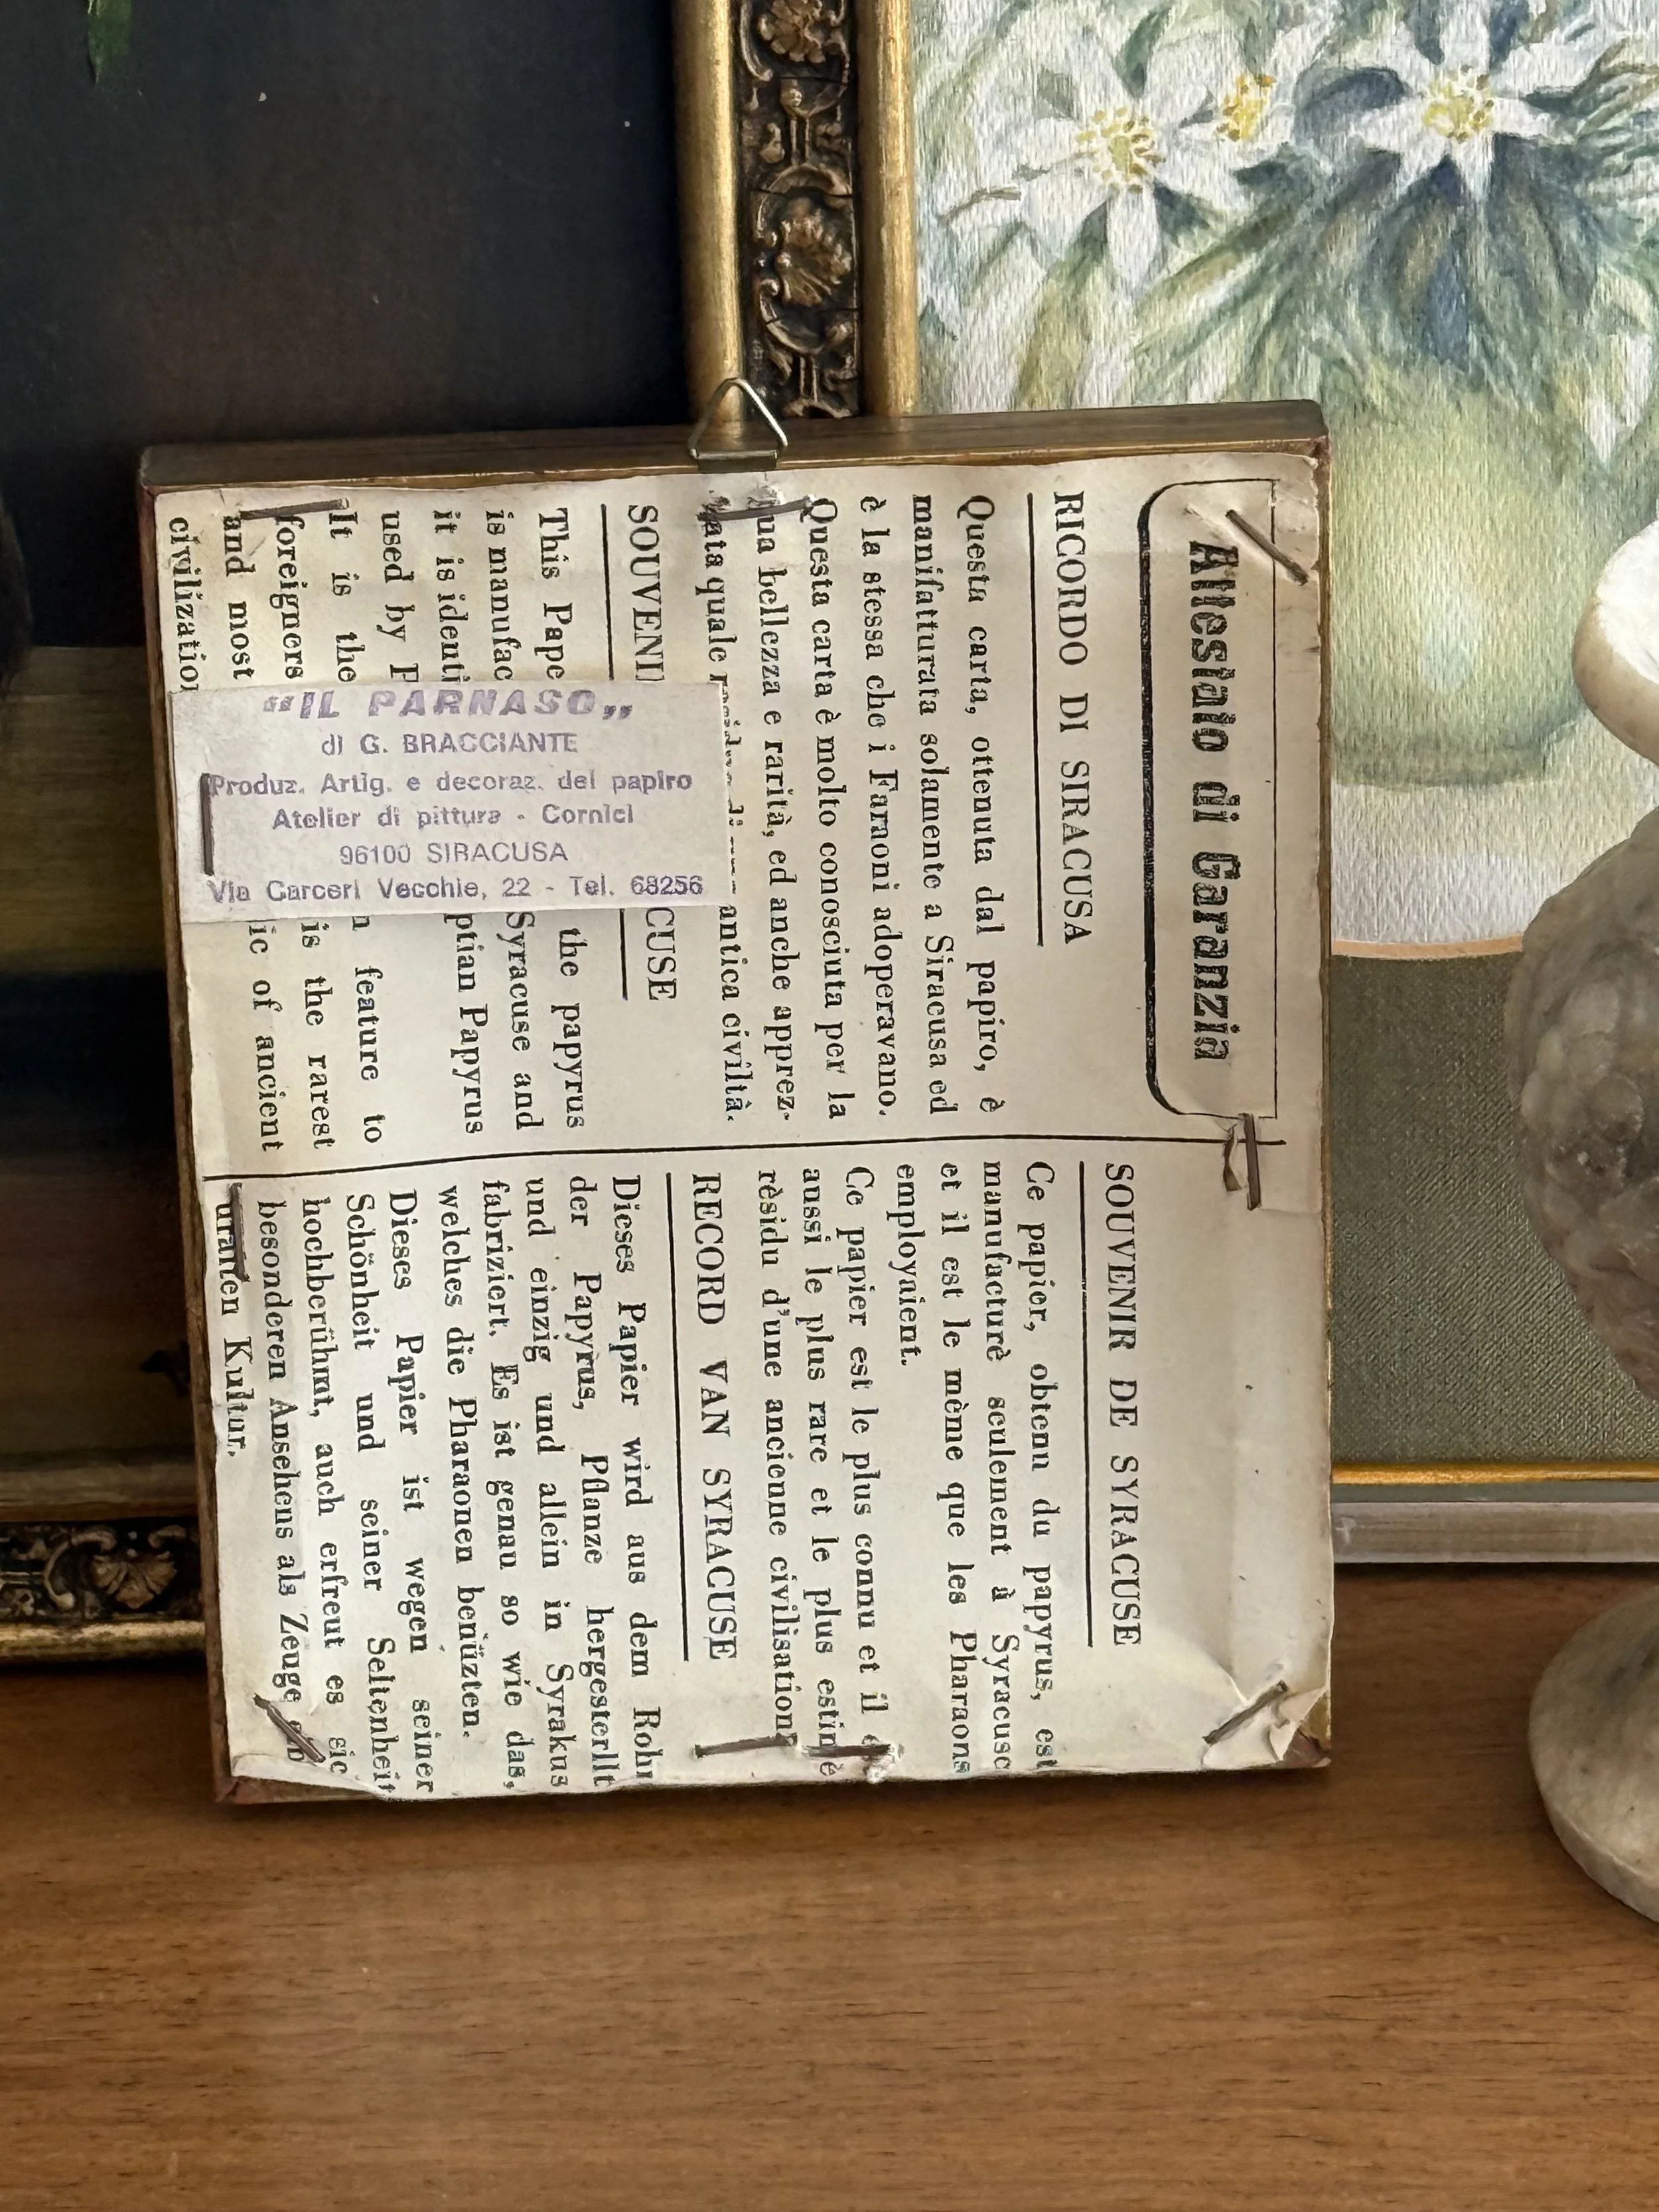 Attestato di Garanzia
RICORDO DI SIRACUSA
Questa carta, ottenuta dal papiro, è
manifatturata solamente a Siracusa ed
è la stessa che i Faraoni adoperavano.
Questa carta è molto conosciuta per la
sua bellezza e rarità, ed anche apprez-
zata quale antica civiltà.
SOUVENI CUSE
This Pape the papyrus
is manufac Syracuse and
it is identi ptian Papyrus
used by P
It is the n feature to
foreigners is the rarest
and most ic of ancient
civilization
SOUVENIR DE SYRACUSE
Ce papier, obtenu du papyrus, est
manufacturè seulement à Syracuse
et il est le mème que les Pharaons
employaient.
Ce papier est le plus connu et il e
aussi le plus rare et le plus estimè
rèsidu d'une ancienne civilisation
RECORD VAN SYRACUSE
Dieses Papier wird aus dem Rohr
der Papyrus, Pflanze hergesterllt
und einzig und allein in Syrakus
fabriziert. Es ist genau so wie das,
welches die Pharaonen benüzten.
Dieses Papier ist wegen seiner
Schönheit und seiner Seltenheit
hochberühmt, auch erfreut es sic
besonderen Ansehens als Zeuge
uralten Kultur.
“IL PARNASO„
di G. BRACCIANTE
Produz. Artig. e decoraz. del papiro
Atelier di pittura - Cornici
96100 SIRACUSA
Via Carceri Vecchie, 22 - Tel. 68256